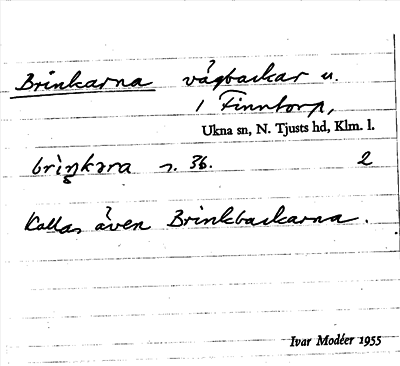 Brinkarna vägbackar u.
1 Finntorp,
Ukna sn, N. Tjusts hd, Klm. l.
brìŋkɿra s. 36. 2
Kallas även Brinkbackarna.
Ivar Modéer 1955